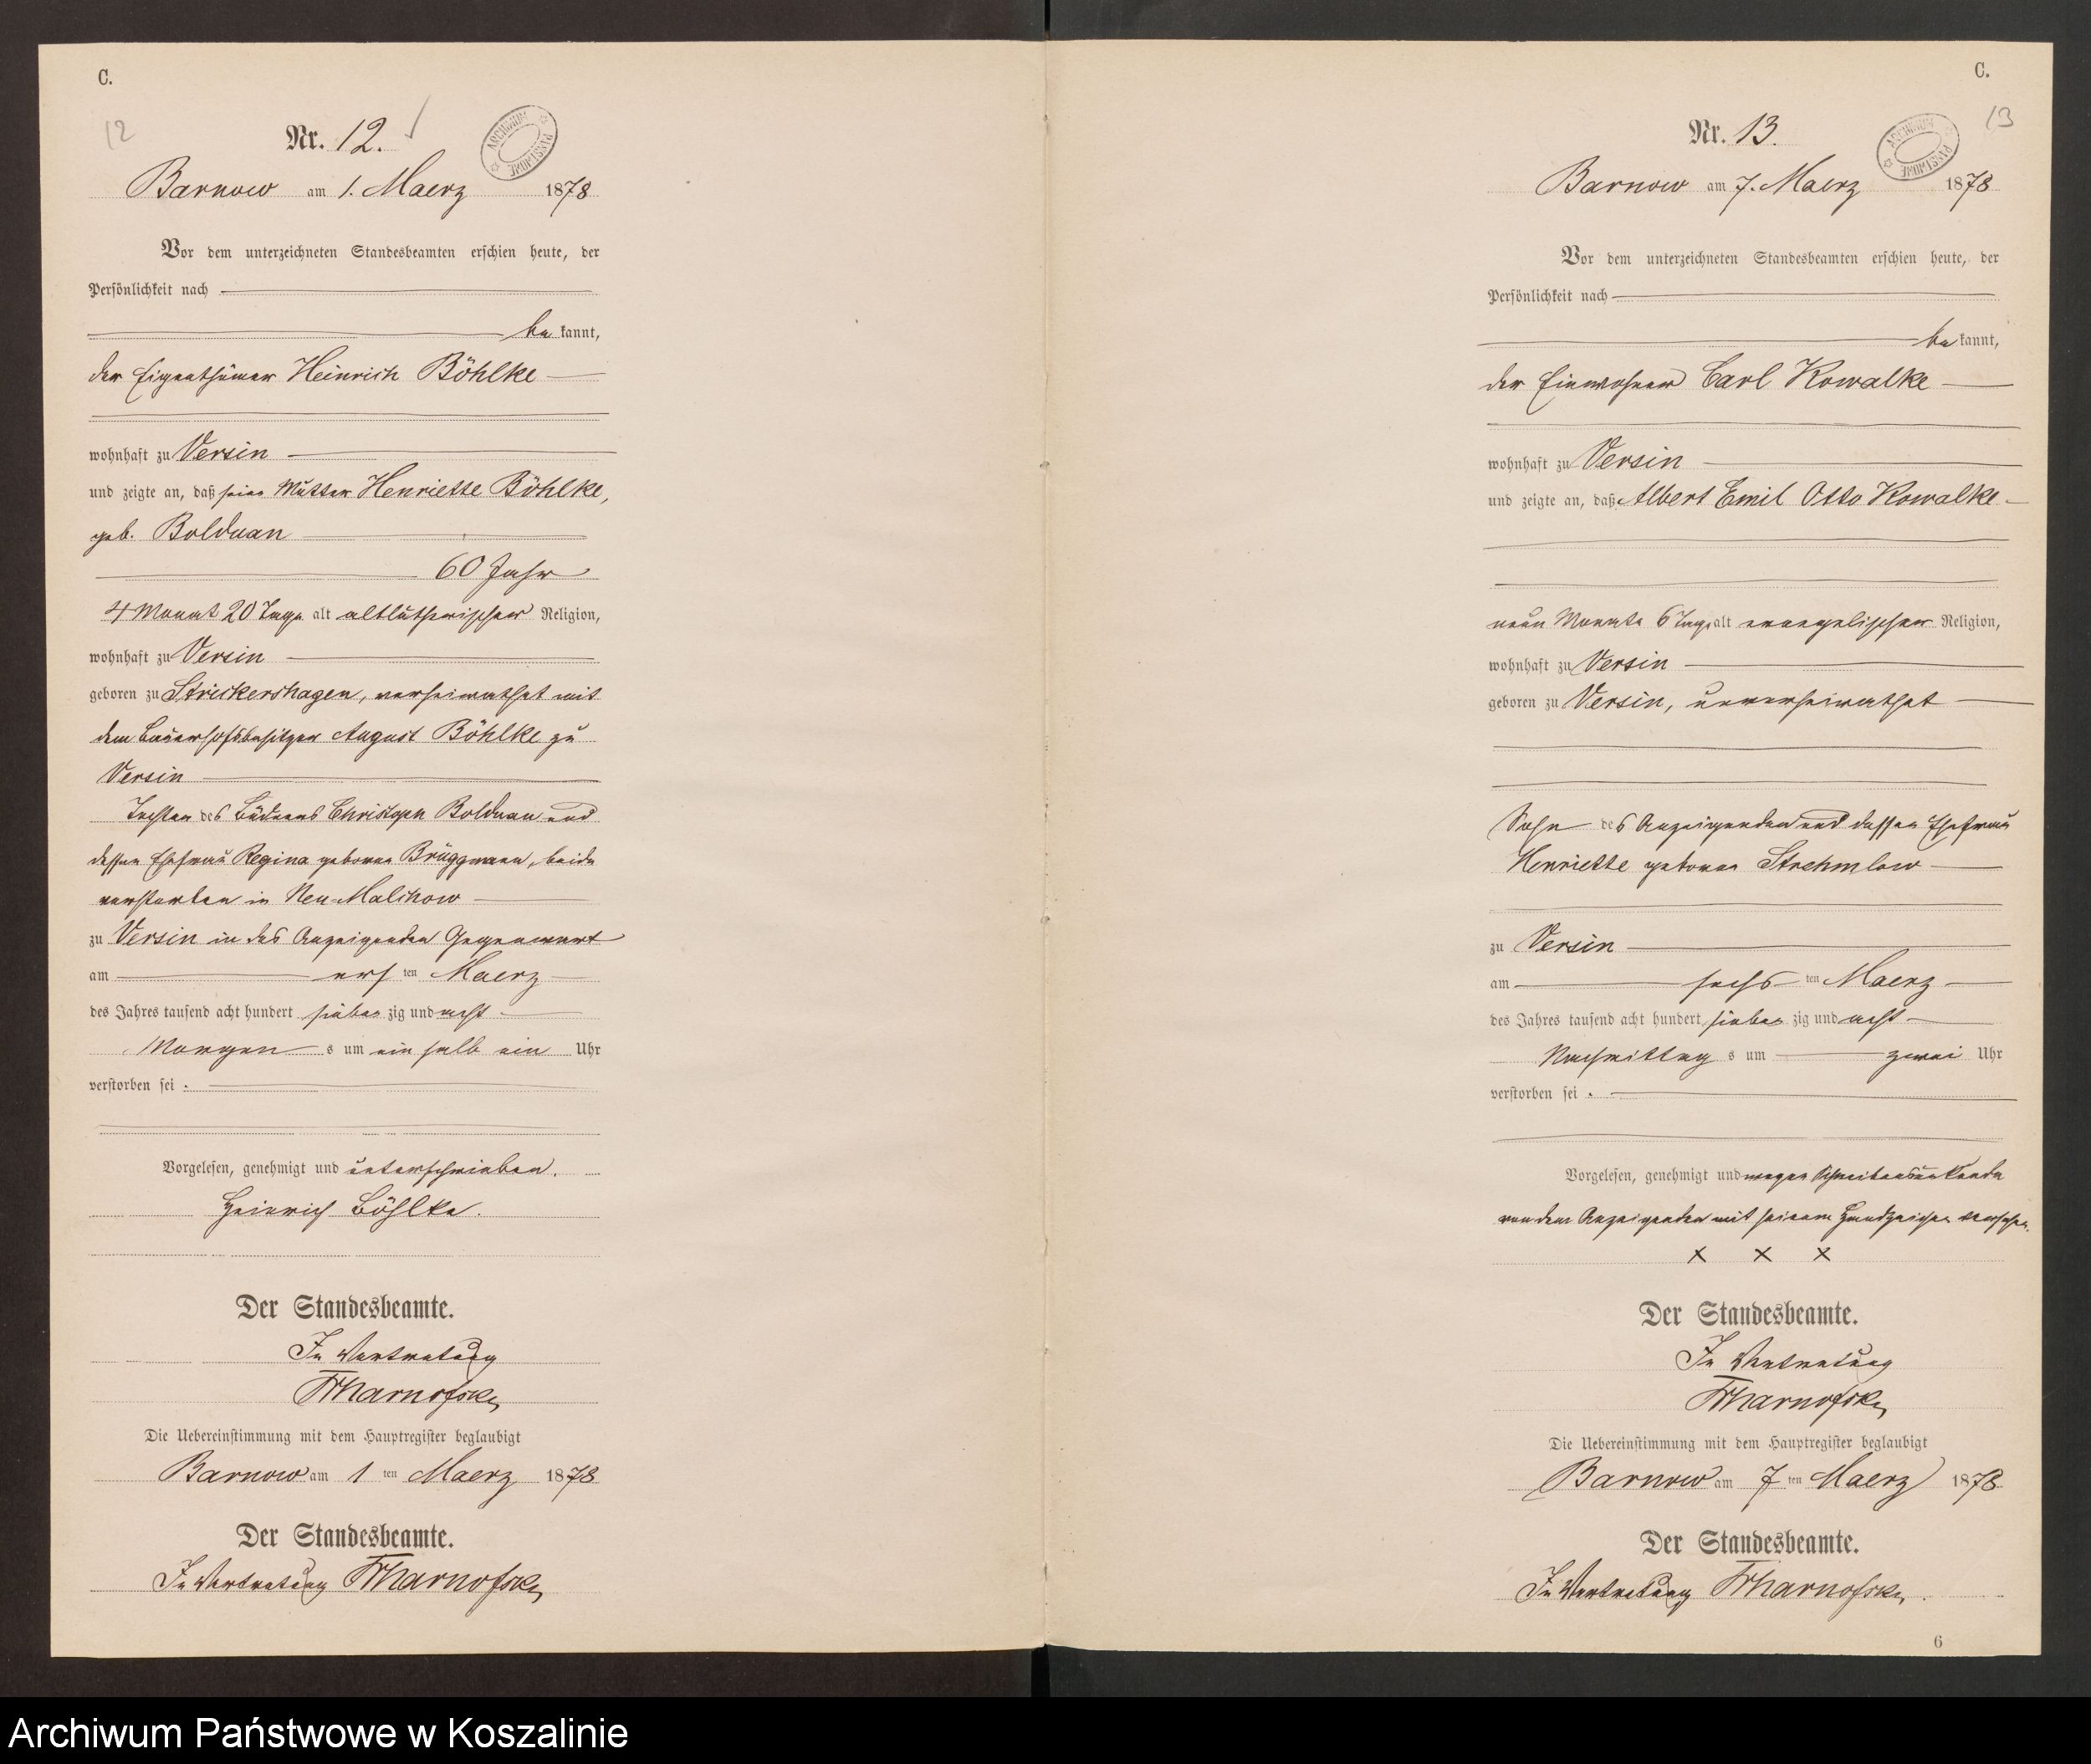 C.
12
Nr. 12.
ARCHIWUM PAŃSTWOWE
Barnow am 1. Maerz 1878
Vor dem unterzeichneten Standesbeamten erschien heute, der
Persönlichkeit nach
be kannt,
der Eigenthümer Heinrich Böhlke
wohnhaft zu Versin
und zeigte an, daß seine Mutter Henriette Böhlke,
geb. Bolduan
60 Jahr
4 Monat 20 Tage alt altlutherischer Religion,
wohnhaft zu Versin
geboren zu Strickershagen, verheirathet mit
dem Bauerhofsbesitzer August Böhlke zu
Versin
Tochter des Büdners Christoph Bolduan und
dessen Ehefrau Regina geborne Brüggmann, beide
verstorben in Neu-Malchow
zu Versin in des Anzeigenden Gegenwart
am ersten Maerz
des Jahres tausend acht hundert siebenzig und acht
Morgens um ein halb ein Uhr
verstorben sei.
Vorgelesen, genehmigt und unterschrieben.
Heinrich Böhlke.
Der Standesbeamte.
In Vertretung
Die Uebereinstimmung mit dem Hauptregister beglaubigt
Barnow am 1ten Maerz 1878
Der Standesbeamte.
In Vertretung
C.
13
Nr. 13.
ARCHIWUM PAŃSTWOWE
Barnow am 7. Maerz 1878
Vor dem unterzeichneten Standesbeamten erschien heute, der
Persönlichkeit nach
be kannt,
der Einwohner Carl Kowalke
wohnhaft zu Versin
und zeigte an, daß Albert Emil Otto Kowalke
neun Monate 6 Tage alt evangelischer Religion,
wohnhaft zu Versin
geboren zu Versin, unverheirathet
Sohn des Anzeigenden und dessen Ehefrau
Henriette geborne Strehmlow
zu Versin
am sechsten Maerz
des Jahres tausend acht hundert siebenzig und acht
Nachmittags um zwei Uhr
verstorben sei.
Vorgelesen, genehmigt und wegen Schreibensunkunde
von dem Anzeigenden mit seinem Handzeichen versehen.
x x x
Der Standesbeamte.
In Vertretung
Die Uebereinstimmung mit dem Hauptregister beglaubigt
Barnow am 7ten Maerz 1878
Der Standesbeamte.
In Vertretung
6
Archiwum Państwowe w Koszalinie